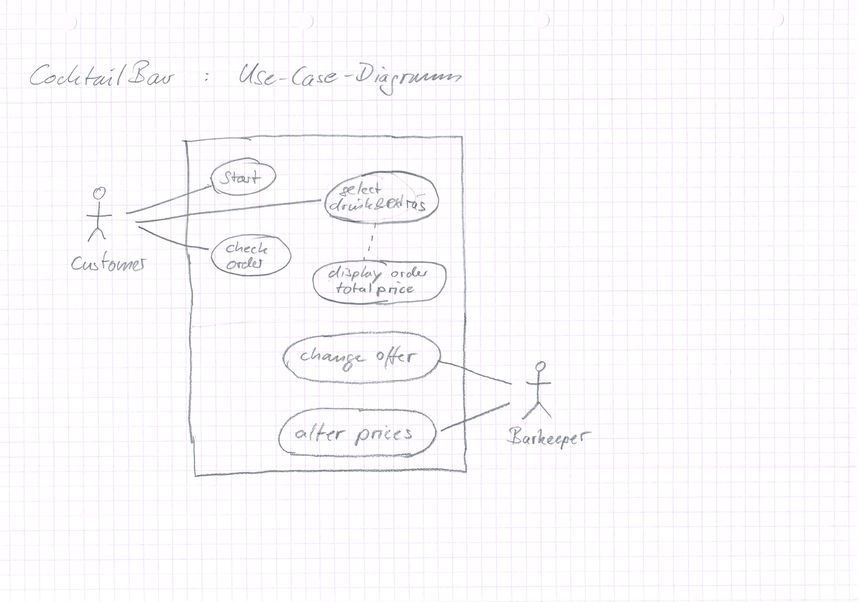 CocktailBar : Use-Case-Diagramm
Start
select
drink&extras
Customer
check
order
display order
total price
change offer
alter prices
Barkeeper